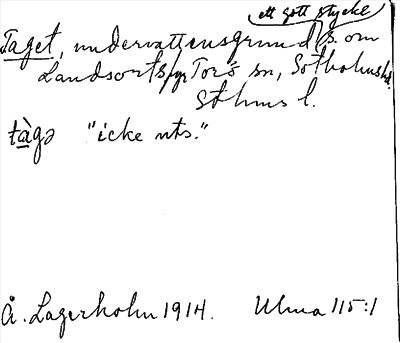 ett gott stycke
Taget, undervattensgrund s. om
Landsorts fyr Torö sn, Sotholms hd.
Sthms l.
tàgə "icke uts."
Å. Lagerholm 1914. Ulma 115:1